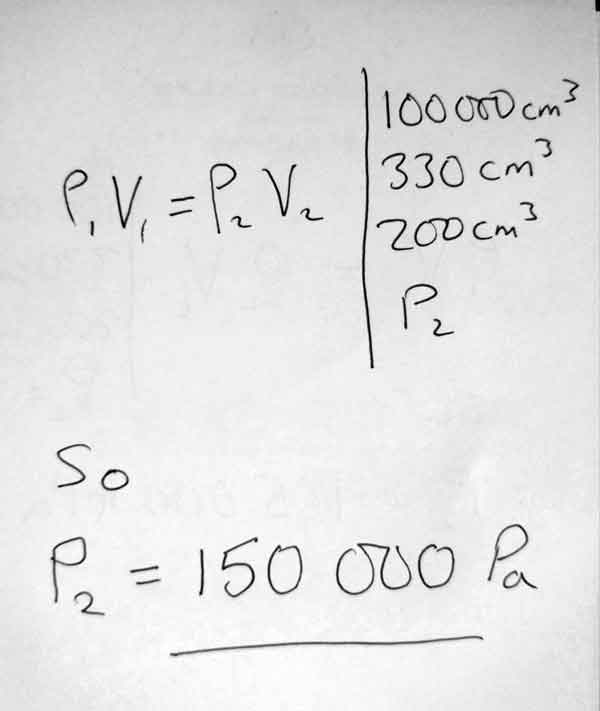 P₁V₁ = P₂V₂
100 000 cm³
330 cm³
200 cm³
P₂
So
P₂ = 150 000 Pa